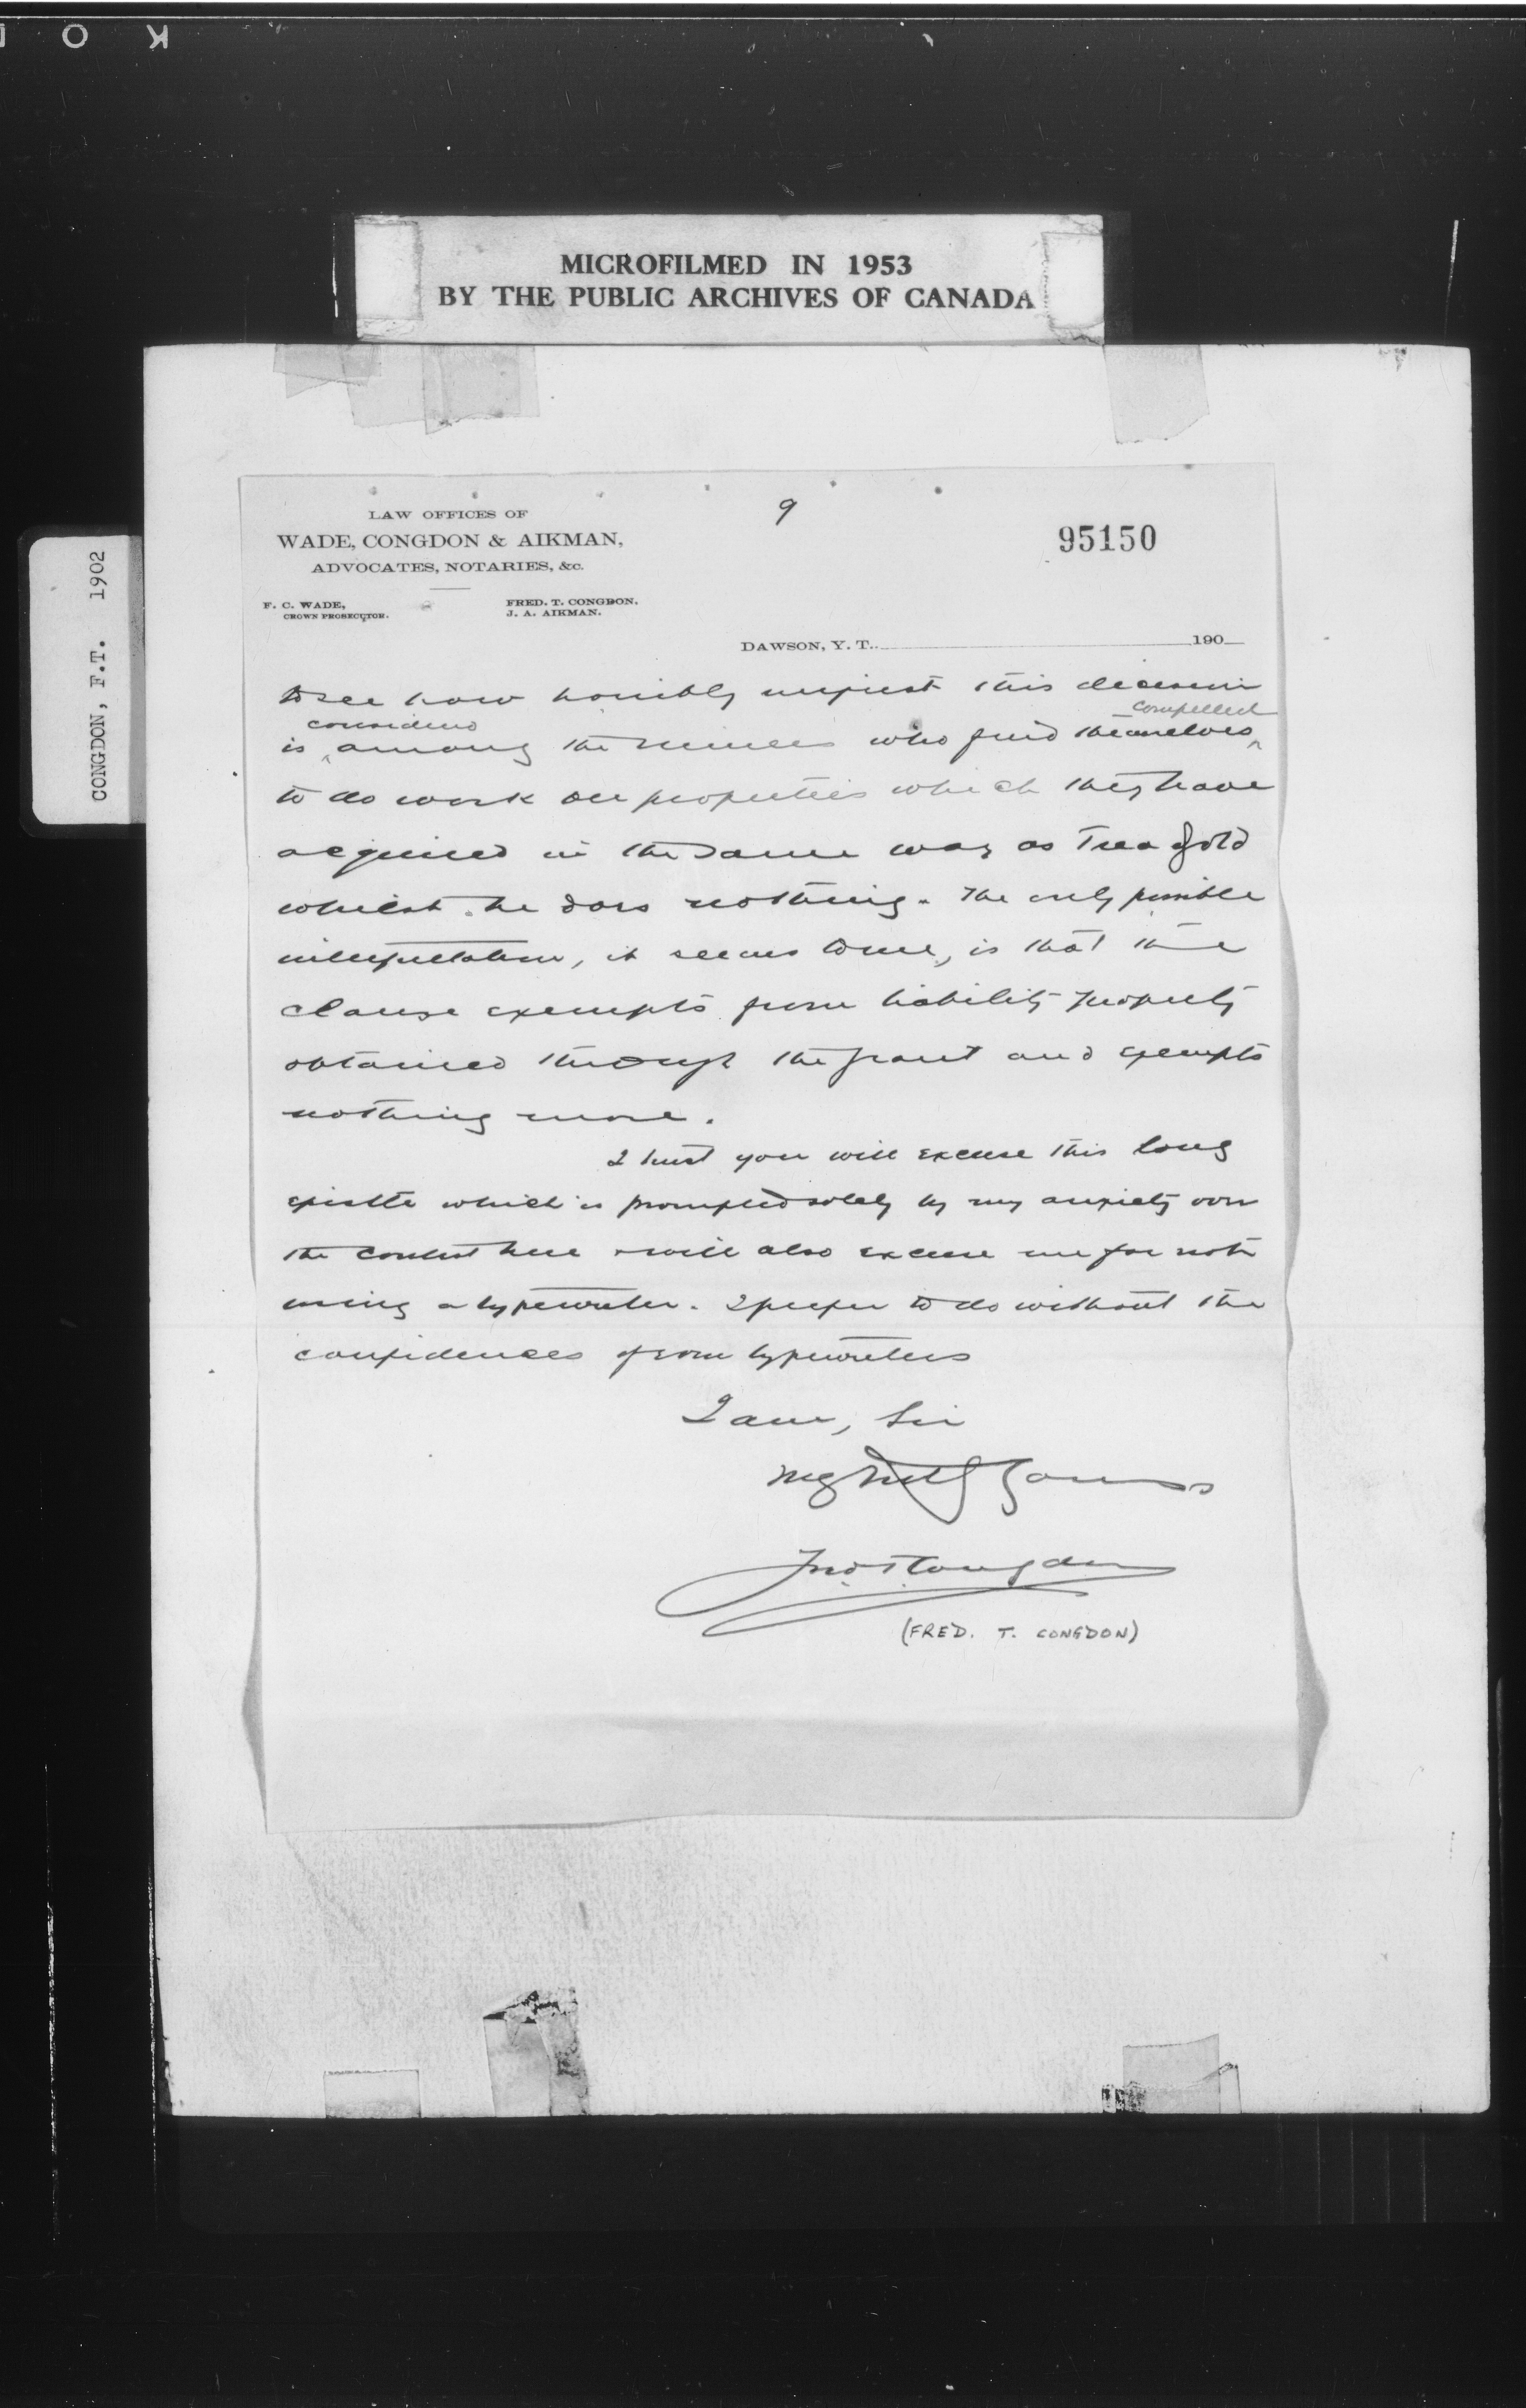 K O
MICROFILMED IN 1953
BY THE PUBLIC ARCHIVES OF CANADA
CONGDON, F.T. 1902
9
95150
LAW OFFICES OF
WADE, CONGDON & AIKMAN,
ADVOCATES, NOTARIES, &c.
F. C. WADE,
CROWN PROSECUTOR.
FRED. T. CONGDON.
J. A. AIKMAN.
DAWSON, Y. T. 190
to see how horribly unjust this decision
considered compelled
is among the miners who find themselves
to do work on properties which they have
acquired in the same way as Treadgold
whilst he does nothing. The only possible
interpretation, it seems to me, is that the
clause exempts from liability property
obtained through the grant and exempts
nothing more.
I trust you will excuse this long
epistle which is prompted solely by my anxiety over
the contest here & will also excuse me for not
using a typewriter. I prefer to do without the
confidences of some typewriters
I am, Sir
Yours
Fred T Congdon
(FRED. T. CONGDON)